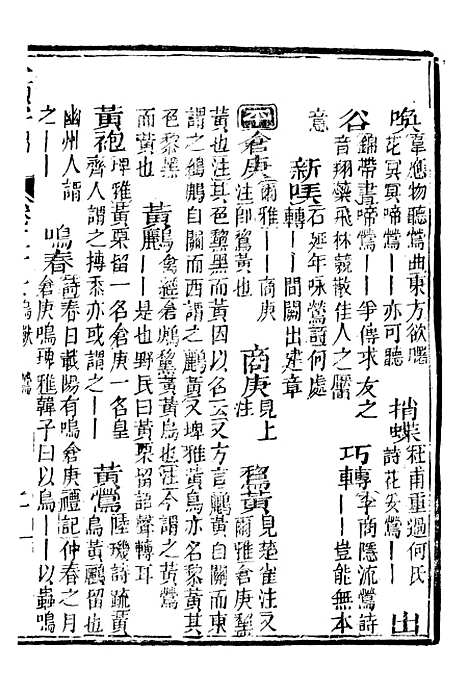 喚韋應物聽鶯曲東方欲曙花冥冥啼鶯——亦可聽　捎蝶杜甫重過何氏詩花妥鶯——　出
谷錦帶書啼鶯——爭傳求友之音翔燕飛林競散佳人之靨　巧轉李商隱流鶯詩——豈能無本
意　新嘆石延年咏鶯詞何處轉——間關出建章
六倉庚爾雅——商庚注即鵹黃也　商庚見上注　鵹黃見楚雀注又爾雅倉庚鵹
黃也注其色黧黑而黃因以名云又方言鸝黃自關而東謂之鶬鶊自關而西謂之鸝黃又埤雅黃鳥亦名黎黃其
色黎黑而黃也　黃鸝禽經倉鶊黧黃黃鳥也注今謂之黃鶯——是也野民曰黃栗留語聲轉耳
黃袍埤雅黃栗留一名倉庚一名皇齊人謂之摶黍亦或謂之——　黃鶯陸璣詩疏黃鳥黃鸝留也
幽州人謂之——　鳴春詩春日載陽有鳴倉庚禮記仲春之月倉庚鳴埤雅韓子曰以鳥——以蟲鳴